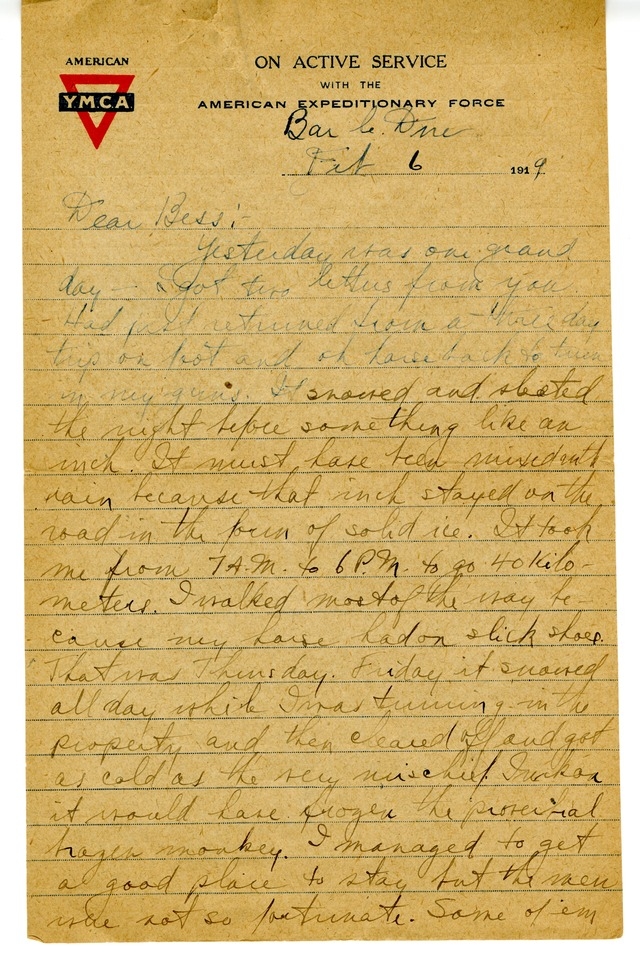 AMERICAN
YMCA
ON ACTIVE SERVICE
WITH THE
AMERICAN EXPEDITIONARY FORCE
Bar le Duc
Feb 6 1919
Dear Bess:-
Yesterday was one grand
day — I got two letters from you.
Had just returned from a three day
trip on foot and on horseback to turn
in my guns. It snowed and sleeted
the night before something like an
inch. It must have been mixed with
rain because that inch stayed on the
road in the form of solid ice. It took
me from 7 A.M. to 6 P.M. to go 40 kilo-
meters. I walked most of the way be-
cause my horse had on slick shoes.
That was Thursday. Friday it snowed
all day while I was turning in the
property and then cleared off and got
as cold as the very mischief. I reckon
it would have frozen the proverbial
brazen monkey. I managed to get
a good place to stay but the men
were not so fortunate. Some of em